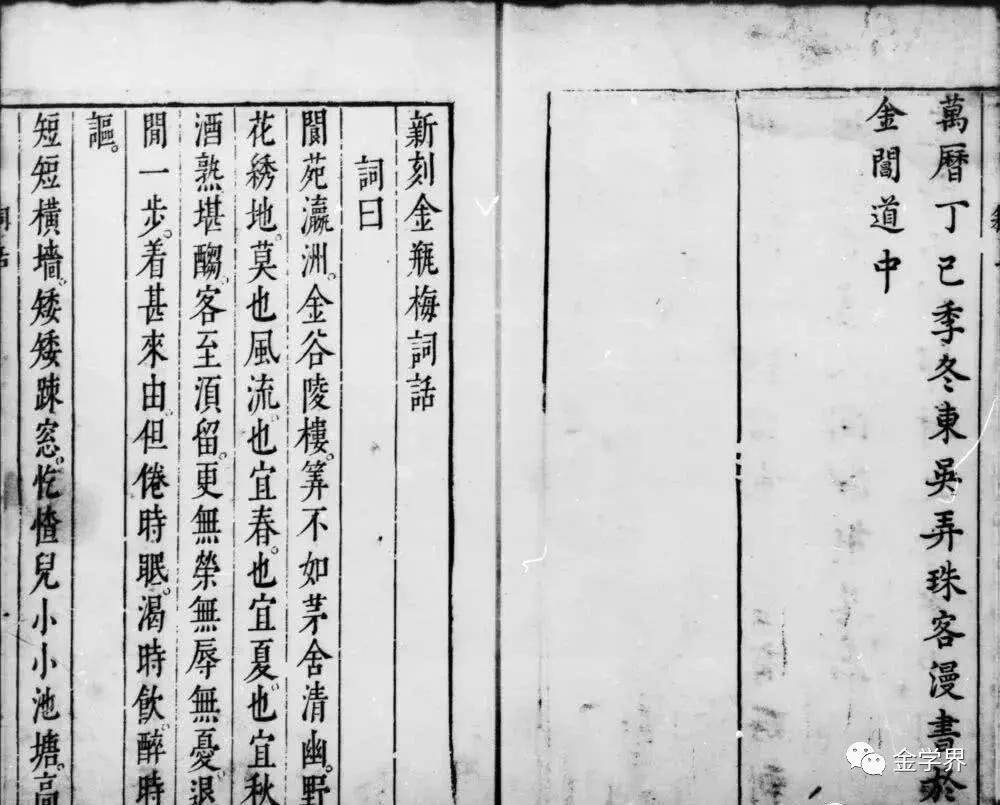 萬曆丁巳季冬東吳弄珠客漫書於
金閶道中
新刻金瓶梅詞話
詞曰
閬苑瀛洲。金谷陵樓。筭不如茅舍清幽。野
花綉地。莫也風流。也宜春。也宜夏。也宜秋
酒熟堪酌。客至須留。更無榮無辱無憂。退
閒一步。着甚來由。但倦時眠。渴時飲。醉時
謳。
短短橫墻。矮矮踈窓。忔㥮兒小小池塘。高
金学界